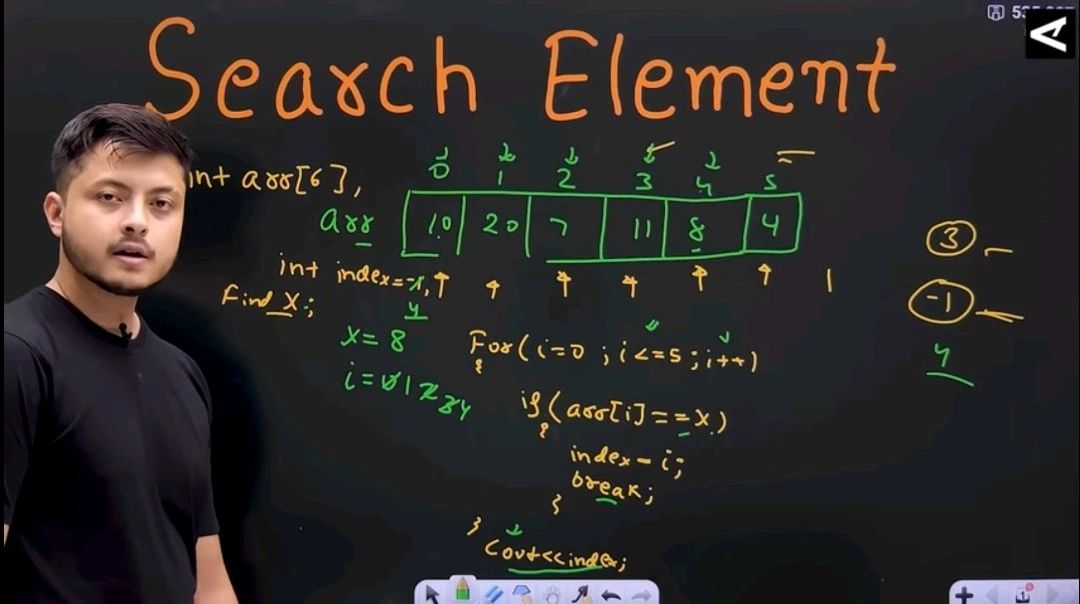 Search Element
int arr[6],
0 1 2 3 4 5
arr 10 20 7 11 8 4
int index=-1,
Find X;
4
X=8
i=01234
For(i=0;i<=5;i++)
{
if(arr[i]==X)
{
index=i;
break;
}
}
Cout<<index;
3
-1
4